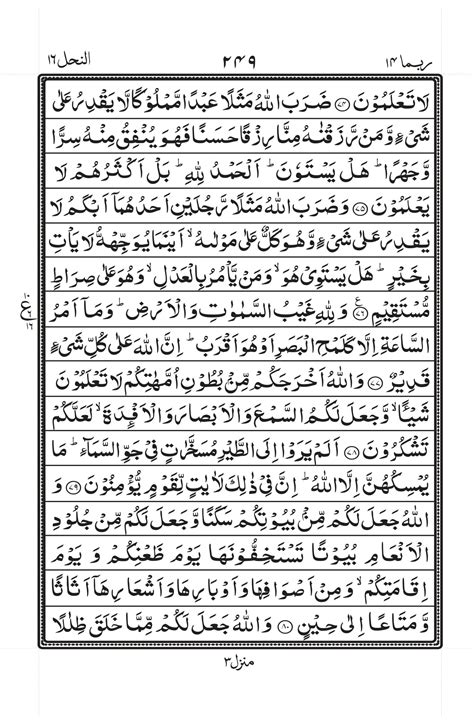 ربما ۱۴ ۲۴۹ النحل ۱۶
لَا تَعْلَمُوْنَ ﴿۷۴﴾ ضَرَبَ اللّٰهُ مَثَلًا عَبْدًا مَّمْلُوْكًا لَّا يَقْدِرُ عَلٰى
شَىْءٍ وَّمَنْ رَّزَقْنٰهُ مِنَّا رِزْقًا حَسَنًا فَهُوَ يُنْفِقُ مِنْهُ سِرًّا
وَّجَهْرًا ؕ هَلْ يَسْتَوٗنَ ؕ اَلْحَمْدُ لِلّٰهِ ؕ بَلْ اَكْثَرُهُمْ لَا
يَعْلَمُوْنَ ﴿۷۵﴾ وَضَرَبَ اللّٰهُ مَثَلًا رَّجُلَيْنِ اَحَدُهُمَاۤ اَبْكَمُ لَا
يَقْدِرُ عَلٰى شَىْءٍ وَّهُوَ كَلٌّ عَلٰى مَوْلٰىهُ ۙ اَيْنَمَا يُوَجِّهْهُّ لَا يَاْتِ
بِخَيْرٍ ؕ هَلْ يَسْتَوِىْ هُوَ ۙ وَمَنْ يَّاْمُرُ بِالْعَدْلِ ۙ وَهُوَ عَلٰى صِرَاطٍ
مُّسْتَقِيْمٍ ﴿۷۶﴾ وَلِلّٰهِ غَيْبُ السَّمٰوٰتِ وَالْاَرْضِ ؕ وَمَاۤ اَمْرُ
السَّاعَةِ اِلَّا كَلَمْحِ الْبَصَرِ اَوْ هُوَ اَقْرَبُ ؕ اِنَّ اللّٰهَ عَلٰى كُلِّ شَىْءٍ
قَدِيْرٌ ﴿۷۷﴾ وَاللّٰهُ اَخْرَجَكُمْ مِّنْۢ بُطُوْنِ اُمَّهٰتِكُمْ لَا تَعْلَمُوْنَ
شَيْـًٔا ۙ وَّجَعَلَ لَكُمُ السَّمْعَ وَالْاَبْصَارَ وَالْاَفْـِٕدَةَ ۙ لَعَلَّكُمْ
تَشْكُرُوْنَ ﴿۷۸﴾ اَلَمْ يَرَوْا اِلَى الطَّيْرِ مُسَخَّرٰتٍ فِىْ جَوِّ السَّمَآءِ ؕ مَا
يُمْسِكُهُنَّ اِلَّا اللّٰهُ ؕ اِنَّ فِىْ ذٰلِكَ لَاٰيٰتٍ لِّقَوْمٍ يُّؤْمِنُوْنَ ﴿۷۹﴾ وَ
اللّٰهُ جَعَلَ لَكُمْ مِّنْۢ بُيُوْتِكُمْ سَكَنًا وَّجَعَلَ لَكُمْ مِّنْ جُلُوْدِ
الْاَنْعَامِ بُيُوْتًا تَسْتَخِفُّوْنَهَا يَوْمَ ظَعْنِكُمْ وَ يَوْمَ
اِقَامَتِكُمْ ۙ وَمِنْ اَصْوَافِهَا وَاَوْبَارِهَا وَاَشْعَارِهَاۤ اَثَاثًا
وَّمَتَاعًا اِلٰى حِيْنٍ ﴿۸۰﴾ وَاللّٰهُ جَعَلَ لَكُمْ مِّمَّا خَلَقَ ظِلٰلًا
منزل ۳